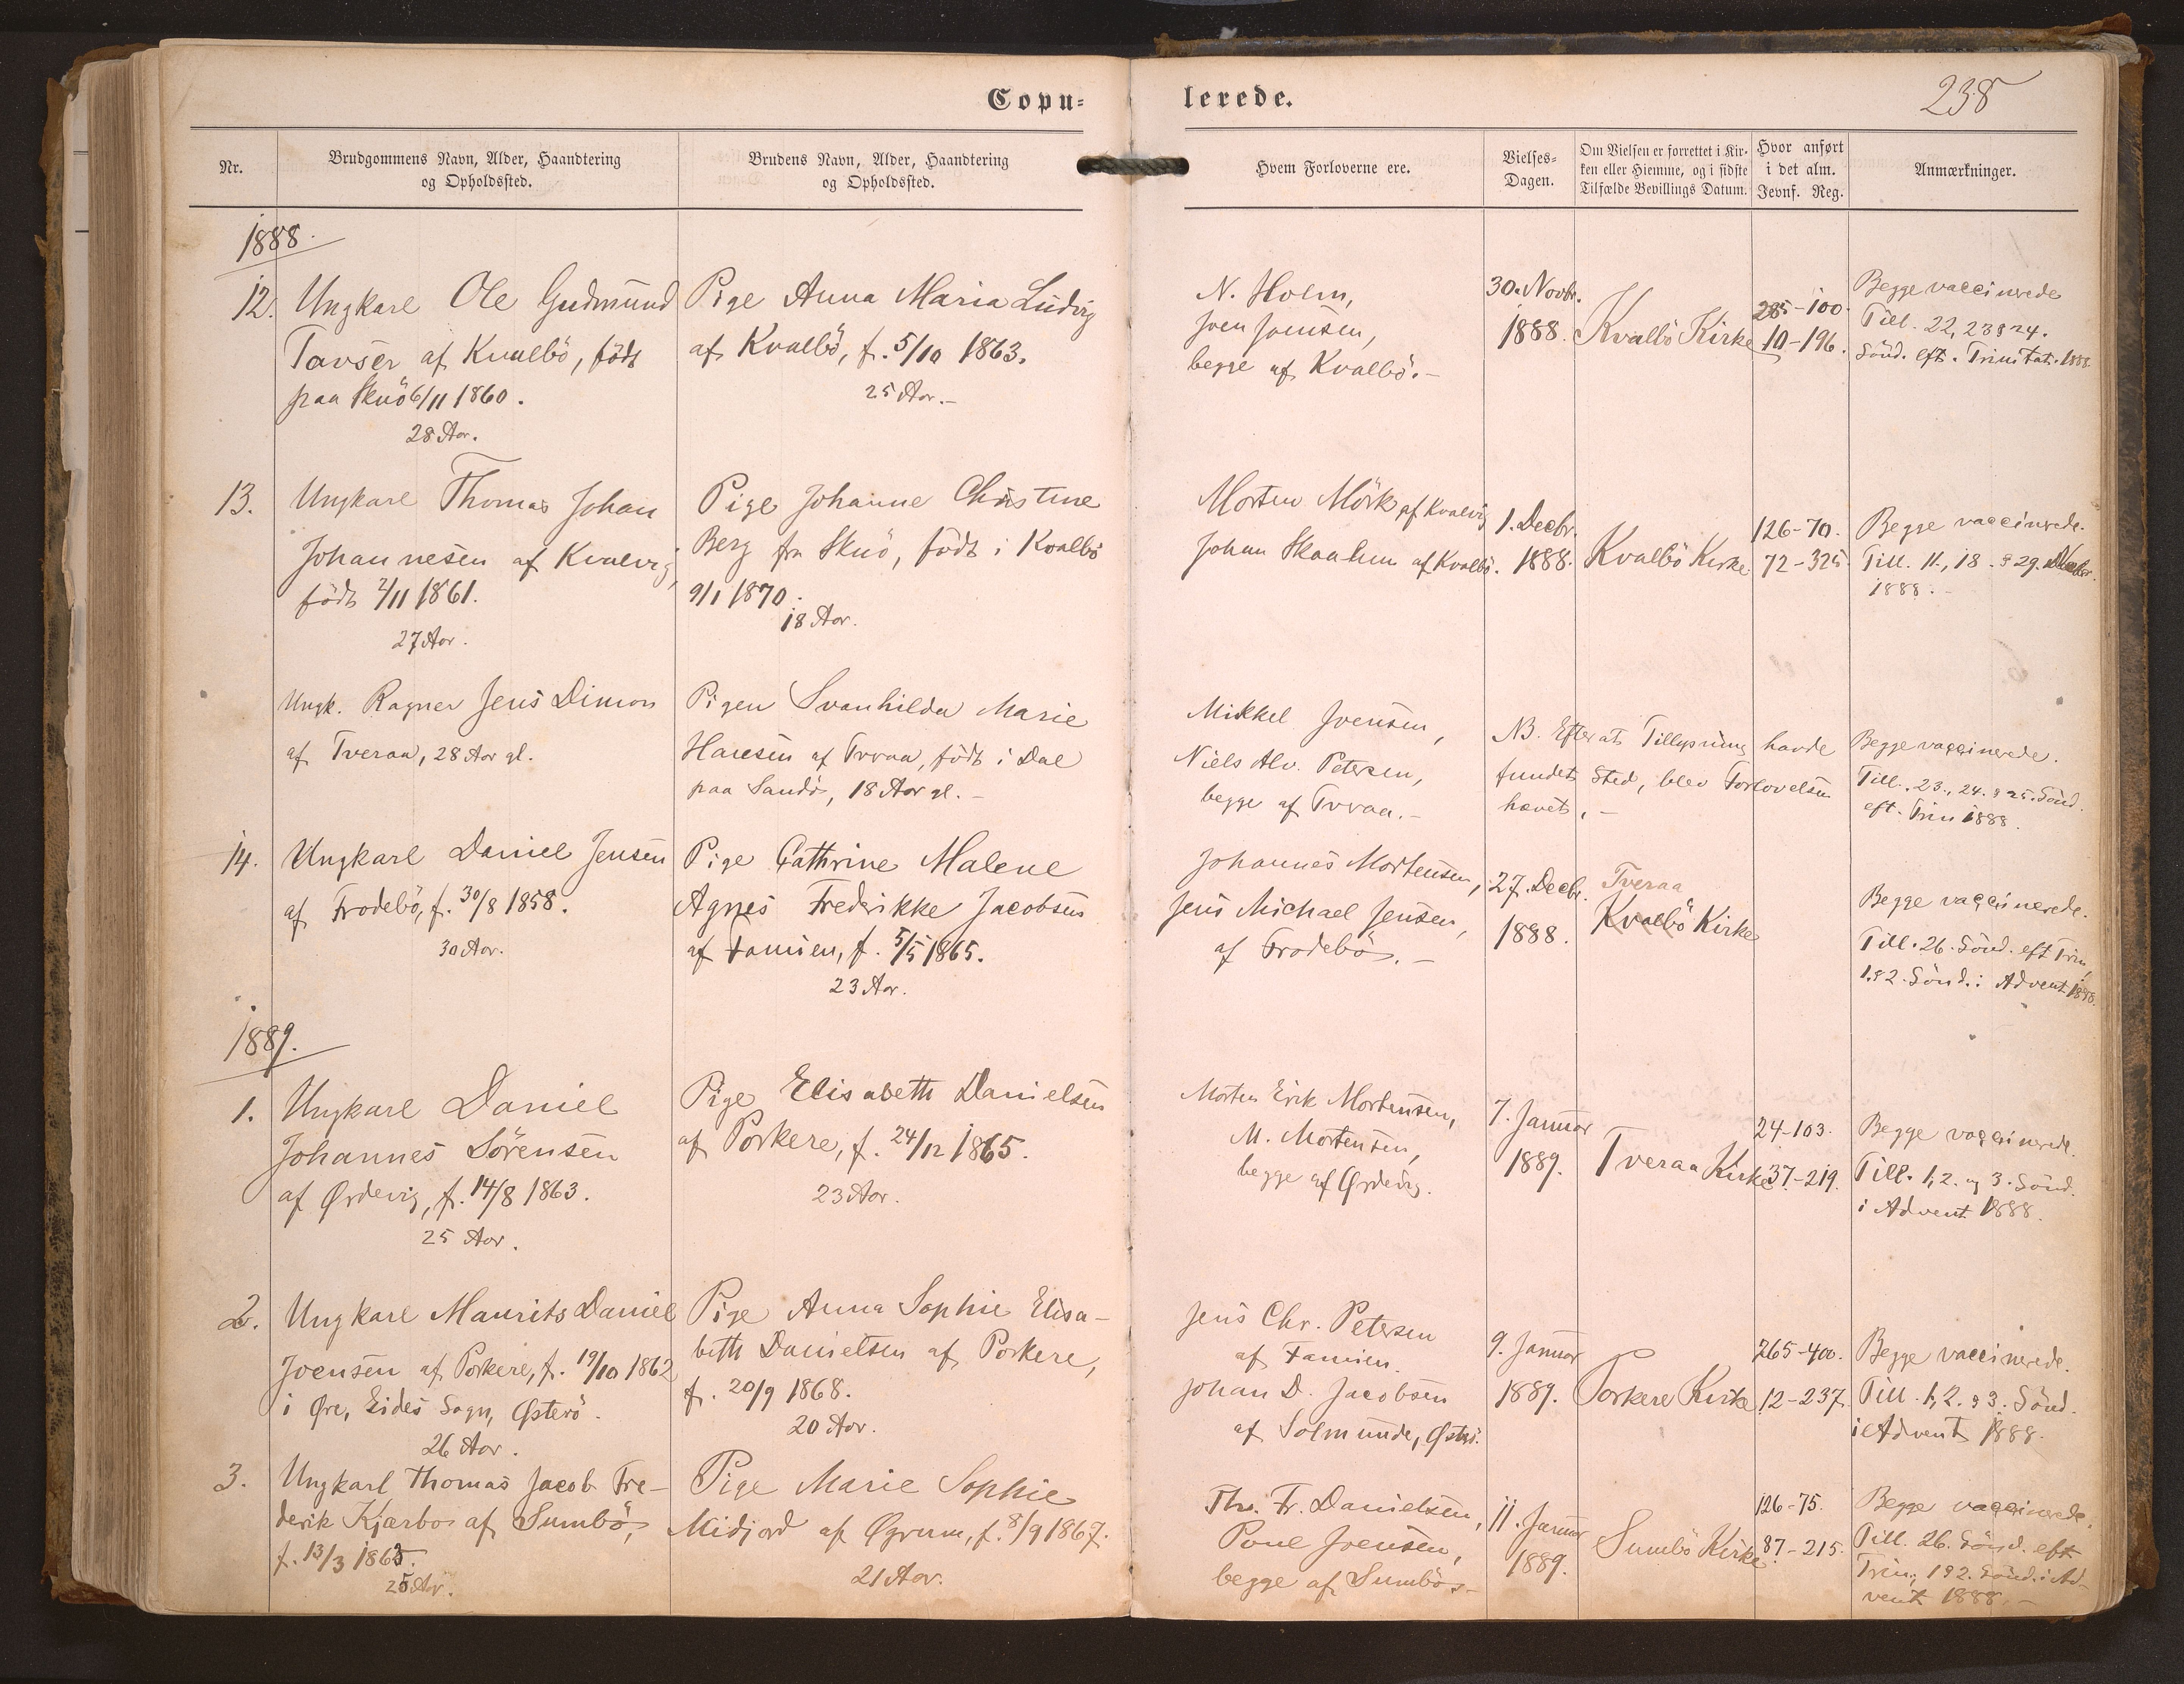 Copu-
lerede.
238
Nr.
Brudgommens Navn, Alder, Haandtering
og Opholdssted.
Brudens Navn, Alder, Haandtering
og Opholdssted.
Hvem Forloverne ere.
Vielses-
Dagen.
Om Vielsen er forrettet i Kir-
ken eller Hjemme, og i sidste
Tilfælde Bevillings Datum.
Hvor anført
i det alm.
Jevnf. Reg.
Anmærkninger.
1888.
12.
Ungkarl Ole Gudmund
Tavsen af Kvalbö, född
paa Skuö 6/11 1860.
28 Aar.
Pige Anna Maria Ludvig
af Kvalbö, f. 5/10 1863.
25 Aar.-
N. Holm,
Joen Joensen,
begge af Kvalbö.-
30. Novbr.
1888.
Kvalbö Kirke
285-100.
10-196.
Begge vaccinerede
Till. 22, 23 & 24.
Sönd. eft. Trinitat. 1888
13.
Ungkarl Thomas Johan
Johannesen af Kvalvig,
födt 2/11 1861.
27 Aar.
Pige Johanne Christine
Berg fra Skuö, födt i Kvalbö
9/1 1870.
18 Aar.
Morten Mörk af Kvalvig
Johan Skaalum af Kvalbö.
1. Decbr.
1888.
Kvalbö Kirke
126-70.
72-325.
Begge vaccinerede.
Till. 11., 18. & 29.
1888.-
Ungk. Ragner Jens Dimon
af Tveraa, 28 Aar gl.
Pigen Svanhilda Marie
Hansen af Tvraa, födt i Dal
paa Sandö, 18 Aar gl.-
Mikkel Joensen,
Niels Alv. Petersen,
begge af Tvraa.-
NB. Efter at Tillysning havde
fundet Sted, blev Forlovelsen
hævet.-
Begge vaccinerede.
Till. 23., 24. & 25. Sönd.
eft. Trin 1888.
14.
Ungkarl Daniel Jensen
af Frodebö, f. 30/8 1858.
30 Aar.
Pige Cathrine Malene
Agnes Frederikke Jacobsen
af Famien, f. 5/5 1865.
23 Aar.
Johannes Mortensen,
Jens Michael Jensen,
af Frodebö.-
27. Decbr.
1888.
Tveraa
Kvalbö Kirke
Begge vaccinerede.
Till. 26. Sönd. eft Trin,
1. & 2. Sönd. i Advent 1888.
1889.
1.
Ungkarl Daniel
Johannes Sörensen
af Ørdevig, f. 14/8 1863.
25 Aar.
Pige Elisabeth Danielsen
af Porkere, f. 24/12 1865.
23 Aar.
Morten Erik Mortensen,
M. Mortensen,
begge af Ørdevig.
7. Januar
1889.
Tveraa Kirke
24-103.
37-219.
Begge vaccinerede.
Till. 1, 2. og 3. Sönd.
i Advent 1888.
2.
Ungkarl Maurits Daniel
Joensen af Porkere, f. 19/10 1862
i Øre, Eides Sogn, Østerö.
26 Aar.
Pige Anna Sophie Elisa-
beth Danielsen af Porkere,
f. 20/9 1868.
20 Aar.
Jens Chr. Petersen
af Famien.
Johan D. Jacobsen
af Solmunde, Øströ.
9. Januar
1889.
Porkere Kirke
265-400.
12-237.
Begge vaccinerede.
Till. 1, 2. & 3. Sönd.
i Advent 1888.
3.
Ungkarl Thomas Jacob Fre-
derik Kjærbo af Sumbö,
f. 13/3 1863.
25 Aar.
Pige Marie Sophie
Midjord af Øgrum, f. 8/9 1867.
21 Aar.
Ths. Fr. Danielsen,
Poul Joensen,
begge af Sumbö.-
11. Januar
1889.
Sumbö Kirke
126-75.
87-215.
Begge vaccinerede.
Till. 26. Sönd. eft
Trin., 1 & 2. Sönd. i Ad-
vent 1888.-